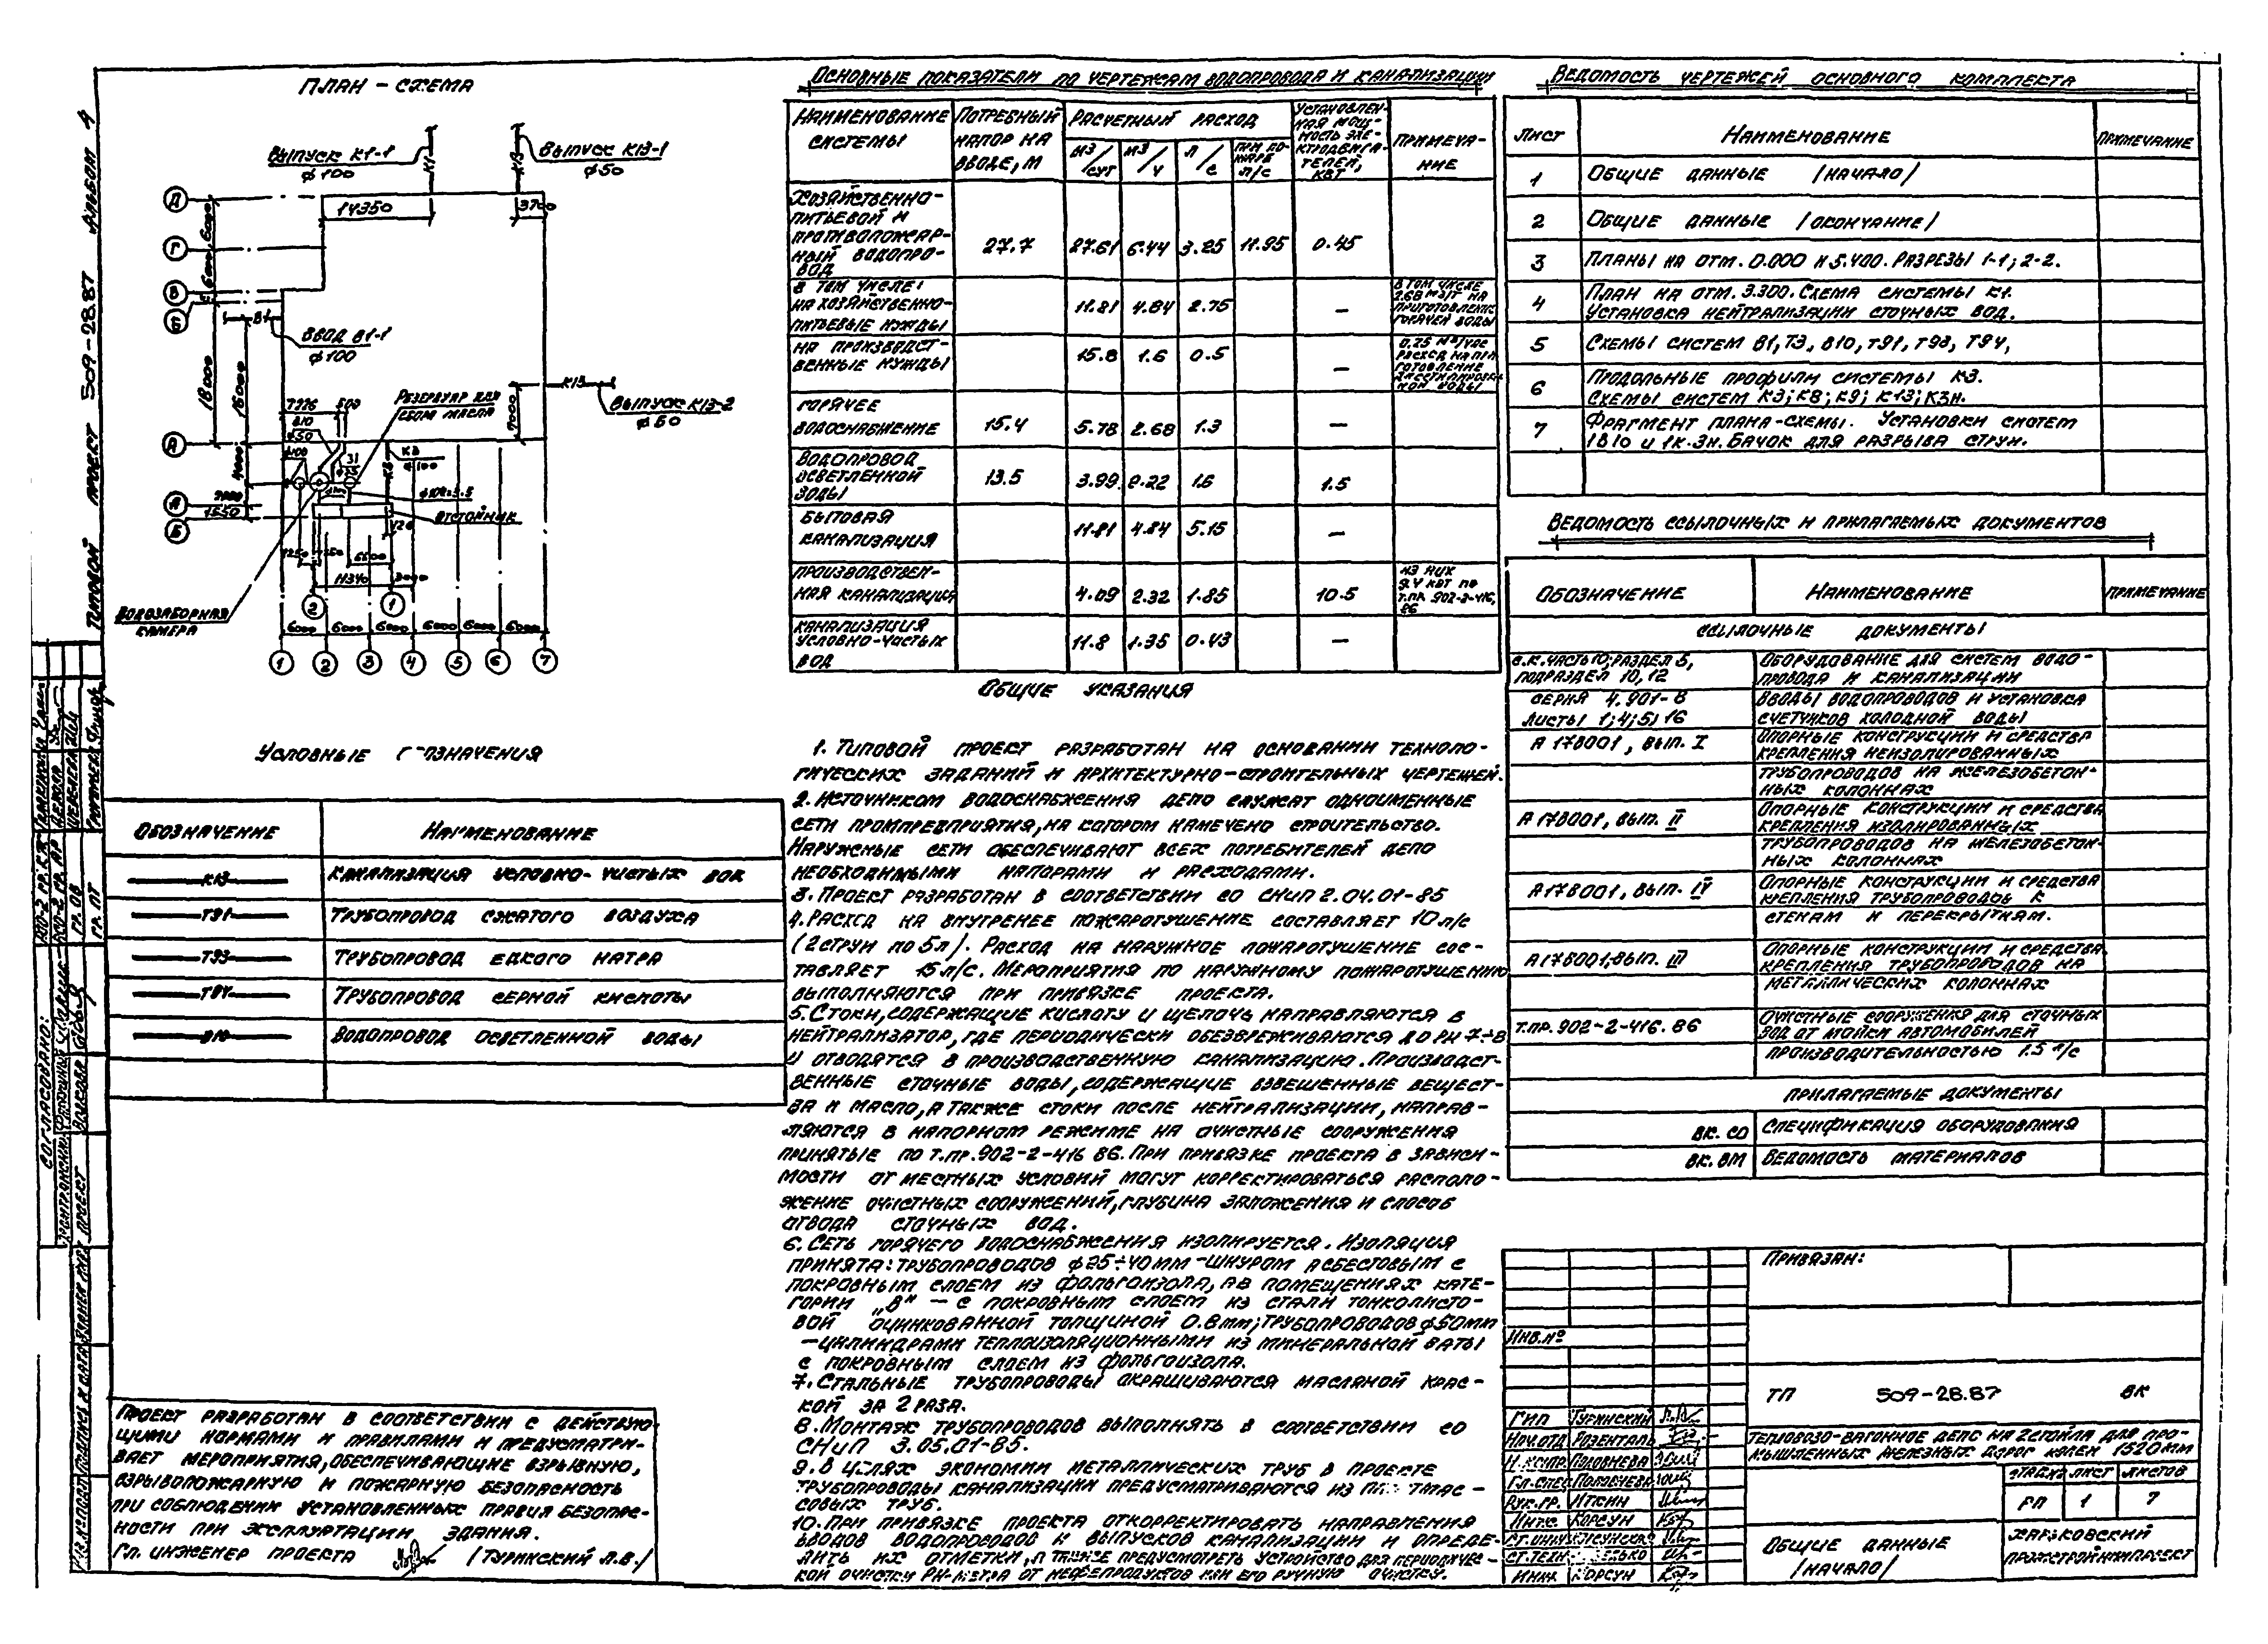 ТИПОВОЙ ПРОЕКТ 509-28.87 АЛЬБОМ 4
ПЛАН-СХЕМА
ВЫПУСК К1-1
ф100
К1
ВЫПУСК К13-1
ф50
К13
14350
3700
Д
Г
В
Б
А
А
Б
6000
6000
18000
16000
4000
В1
ВВОД В1-1
ф100
К13
ВЫПУСК К13-2
ф50
7000
РЕЗЕРВУАР ДЛЯ
СБОРА МАСЛА
500
В10
ф50
К3
ОТСТОЙНИК
1550
6600
11340
3000
ВОДОЗАБОРНАЯ
КАМЕРА
2
1
6000 6000 6000 6000 6000 6000
1 2 3 4 5 6 7
УСЛОВНЫЕ ОБОЗНАЧЕНИЯ
ОБОЗНАЧЕНИЕ НАИМЕНОВАНИЕ
К13 КАНАЛИЗАЦИЯ УСЛОВНО-ЧИСТЫХ ВОД
Т91 ТРУБОПРОВОД СЖАТОГО ВОЗДУХА
Т93 ТРУБОПРОВОД ЕДКОГО НАТРА
Т94 ТРУБОПРОВОД СЕРНОЙ КИСЛОТЫ
В10 ВОДОПРОВОД ОСВЕТЛЕННОЙ ВОДЫ
ПРОЕКТ РАЗРАБОТАН В СООТВЕТСТВИИ С ДЕЙСТВУЮ-
ЩИМИ НОРМАМИ И ПРАВИЛАМИ И ПРЕДУСМАТРИ-
ВАЕТ МЕРОПРИЯТИЯ, ОБЕСПЕЧИВАЮЩИЕ ВЗРЫВНУЮ,
ВЗРЫВОПОЖАРНУЮ И ПОЖАРНУЮ БЕЗОПАСНОСТЬ
ПРИ СОБЛЮДЕНИИ УСТАНОВЛЕННЫХ ПРАВИЛ БЕЗОПАС-
НОСТИ ПРИ ЭКСПЛУАТАЦИИ ЗДАНИЯ.
ГЛ. ИНЖЕНЕР ПРОЕКТА /ТУРИНСКИЙ Л.В./
ОСНОВНЫЕ ПОКАЗАТЕЛИ ПО ЧЕРТЕЖАМ ВОДОПРОВОДА И КАНАЛИЗАЦИИ
НАИМЕНОВАНИЕ СИСТЕМЫ
ПОТРЕБНЫЙ НАПОР НА ВВОДЕ, М
РАСЧЕТНЫЙ РАСХОД
М3/СУТ М3/Ч Л/С ПРИ ПОЖАРЕ Л/С
УСТАНОВЛЕН-
НАЯ МОЩ-
НОСТЬ ЭЛЕ-
КТРОДВИГА-
ТЕЛЕЙ,
КВТ
ПРИМЕЧА-
НИЕ
ХОЗЯЙСТВЕННО-
ПИТЬЕВОЙ И
ПРОТИВОПОЖАР-
НЫЙ ВОДОПРО-
ВОД
27.7 27.61 6.44 3.25 11.95 0.45
В ТОМ ЧИСЛЕ:
НА ХОЗЯЙСТВЕННО-
ПИТЬЕВЫЕ НУЖДЫ
11.81 4.84 2.75 —
В ТОМ ЧИСЛЕ
2.68 М3/Ч НА
ПРИГОТОВЛЕНИЕ
ГОРЯЧЕЙ ВОДЫ
НА ПРОИЗВОДСТ-
ВЕННЫЕ НУЖДЫ
15.8 1.6 0.5 —
0.25 М3/ЧАС
РАСХОД НА ПРИ
ГОТОВЛЕНИЕ
ДИСТИЛЛИРОВАН
НОЙ ВОДЫ
ГОРЯЧЕЕ
ВОДОСНАБЖЕНИЕ
15.4 5.78 2.68 1.3 —
ВОДОПРОВОД
ОСВЕТЛЕННОЙ
ВОДЫ
13.5 3.99 2.22 1.6 1.5
БЫТОВАЯ
КАНАЛИЗАЦИЯ
11.81 4.84 5.15 —
ПРОИЗВОДСТВЕН-
НАЯ КАНАЛИЗАЦИЯ
4.09 2.32 1.85 10.5
ИЗ НИХ
9.4 КВТ ПО
Т.ПР. 902-2-416.
86
КАНАЛИЗАЦИЯ
УСЛОВНО-ЧИСТЫХ
ВОД
11.8 1.35 0.43 —
ОБЩИЕ УКАЗАНИЯ
1. ТИПОВОЙ ПРОЕКТ РАЗРАБОТАН НА ОСНОВАНИИ ТЕХНОЛО-
ГИЧЕСКИХ ЗАДАНИЙ И АРХИТЕКТУРНО-СТРОИТЕЛЬНЫХ ЧЕРТЕЖЕЙ.
2. ИСТОЧНИКОМ ВОДОСНАБЖЕНИЯ ДЕПО СЛУЖАТ ОДНОИМЕННЫЕ
СЕТИ ПРОМПРЕДПРИЯТИЯ, НА КОТОРОМ НАМЕЧЕНО СТРОИТЕЛЬСТВО.
НАРУЖНЫЕ СЕТИ ОБЕСПЕЧИВАЮТ ВСЕХ ПОТРЕБИТЕЛЕЙ ДЕПО
НЕОБХОДИМЫМИ НАПОРАМИ И РАСХОДАМИ.
3. ПРОЕКТ РАЗРАБОТАН В СООТВЕТСТВИИ СО СНиП 2.04.01-85
4. РАСХОД НА ВНУТРЕНЕЕ ПОЖАРОТУШЕНИЕ СОСТАВЛЯЕТ 10 Л/С
(2 СТРУИ ПО 5Л). РАСХОД НА НАРУЖНОЕ ПОЖАРОТУШЕНИЕ СОС-
ТАВЛЯЕТ 15 Л/С. МЕРОПРИЯТИЯ ПО НАРУЖНОМУ ПОЖАРОТУШЕНИЮ
ВЫПОЛНЯЮТСЯ ПРИ ПРИВЯЗКЕ ПРОЕКТА.
5. СТОКИ, СОДЕРЖАЩИЕ КИСЛОТУ И ЩЕЛОЧЬ НАПРАВЛЯЮТСЯ В
НЕЙТРАЛИЗАТОР, ГДЕ ПЕРИОДИЧЕСКИ ОБЕЗВРЕЖИВАЮТСЯ ДО РН 7÷8
И ОТВОДЯТСЯ В ПРОИЗВОДСТВЕННУЮ КАНАЛИЗАЦИЮ. ПРОИЗВОДСТ-
ВЕННЫЕ СТОЧНЫЕ ВОДЫ, СОДЕРЖАЩИЕ ВЗВЕШЕННЫЕ ВЕЩЕСТ-
ВА И МАСЛО, А ТАКЖЕ СТОКИ ПОСЛЕ НЕЙТРАЛИЗАЦИИ, НАПРАВ-
ЛЯЮТСЯ В НАПОРНОМ РЕЖИМЕ НА ОЧИСТНЫЕ СООРУЖЕНИЯ
ПРИНЯТЫЕ ПО Т.ПР.902-2-416 86. ПРИ ПРИВЯЗКЕ ПРОЕКТА В ЗАВИСИ-
МОСТИ ОТ МЕСТНЫХ УСЛОВИЙ МОГУТ КОРРЕКТИРОВАТЬСЯ РАСПОЛО-
ЖЕНИЕ ОЧИСТНЫХ СООРУЖЕНИЙ, ГЛУБИНА ЗАЛОЖЕНИЯ И СПОСОБ
ОТВОДА СТОЧНЫХ ВОД.
6. СЕТЬ ГОРЯЧЕГО ВОДОСНАБЖЕНИЯ ИЗОЛИРУЕТСЯ. ИЗОЛЯЦИЯ
ПРИНЯТА: ТРУБОПРОВОДОВ ф25÷40ММ-ШНУРОМ АСБЕСТОВЫМ С
ПОКРОВНЫМ СЛОЕМ ИЗ ФОЛЬГОИЗОЛА, А В ПОМЕЩЕНИЯХ КАТЕ-
ГОРИИ „В" — С ПОКРОВНЫМ СЛОЕМ ИЗ СТАЛИ ТОНКОЛИСТО-
ВОЙ ОЦИНКОВАННОЙ ТОЛЩИНОЙ 0.8мм; ТРУБОПРОВОДОВ ф50мм
—ЦИЛИНДРАМИ ТЕПЛОИЗОЛЯЦИОННЫМИ ИЗ МИНЕРАЛЬНОЙ ВАТЫ
С ПОКРОВНЫМ СЛОЕМ ИЗ ФОЛЬГОИЗОЛА.
7. СТАЛЬНЫЕ ТРУБОПРОВОДЫ ОКРАШИВАЮТСЯ МАСЛЯНОЙ КРАС-
КОЙ ЗА 2 РАЗА.
8. МОНТАЖ ТРУБОПРОВОДОВ ВЫПОЛНЯТЬ В СООТВЕТСТВИИ СО
СНиП 3.05.01-85.
9. В ЦЕЛЯХ ЭКОНОМИИ МЕТАЛЛИЧЕСКИХ ТРУБ В ПРОЕКТЕ
ТРУБОПРОВОДЫ КАНАЛИЗАЦИИ ПРЕДУСМАТРИВАЮТСЯ ИЗ ПЛАСТМАС-
СОВЫХ ТРУБ.
10. ПРИ ПРИВЯЗКЕ ПРОЕКТА ОТКОРРЕКТИРОВАТЬ НАПРАВЛЕНИЯ
ВВОДОВ ВОДОПРОВОДОВ И ВЫПУСКОВ КАНАЛИЗАЦИИ И ОПРЕДЕ-
ЛИТЬ ИХ ОТМЕТКИ, А ТАКЖЕ ПРЕДУСМОТРЕТЬ УСТРОЙСТВО ДЛЯ ПЕРИОДИЧЕС-
КОЙ ОЧИСТКИ РН-МЕТРА ОТ НЕФТЕПРОДУКТОВ ИЛИ ЕГО РУЧНУЮ ОЧИСТКУ.
ВЕДОМОСТЬ ЧЕРТЕЖЕЙ ОСНОВНОГО КОМПЛЕКТА
ЛИСТ НАИМЕНОВАНИЕ ПРИМЕЧАНИЕ
1 ОБЩИЕ ДАННЫЕ /НАЧАЛО/
2 ОБЩИЕ ДАННЫЕ /ОКОНЧАНИЕ/
3 ПЛАНЫ НА ОТМ. 0.000 И 5.400. РАЗРЕЗЫ 1-1; 2-2.
4 ПЛАН НА ОТМ. 3.300. СХЕМА СИСТЕМЫ К1.
УСТАНОВКА НЕЙТРАЛИЗАЦИИ СТОЧНЫХ ВОД.
5 СХЕМЫ СИСТЕМ В1, Т3, В10, Т91, Т93, Т94,
6 ПРОДОЛЬНЫЕ ПРОФИЛИ СИСТЕМЫ К3.
СХЕМЫ СИСТЕМ К3; К8; К9; К13; К3Н.
7 ФРАГМЕНТ ПЛАНА-СХЕМЫ. УСТАНОВКИ СИСТЕМ
1В10 И 1К.3Н. БАЧОК ДЛЯ РАЗРЫВА СТРУИ.
ВЕДОМОСТЬ ССЫЛОЧНЫХ И ПРИЛАГАЕМЫХ ДОКУМЕНТОВ
ОБОЗНАЧЕНИЕ НАИМЕНОВАНИЕ ПРИМЕЧАНИЕ
ССЫЛОЧНЫЕ ДОКУМЕНТЫ
С.К. ЧАСТЬ 10; РАЗДЕЛ 5, ОБОРУДОВАНИЕ ДЛЯ СИСТЕМ ВОДО-
ПОДРАЗДЕЛ 10, 12 ПРОВОДА И КАНАЛИЗАЦИИ
СЕРИЯ 4.901-8 ВВОДЫ ВОДОПРОВОДОВ И УСТАНОВКА
ЛИСТЫ 1;4;5;16 СЧЕТЧИКОВ ХОЛОДНОЙ ВОДЫ
А 178001, ВЫП. I ОПОРНЫЕ КОНСТРУКЦИИ И СРЕДСТВА
КРЕПЛЕНИЯ НЕИЗОЛИРОВАННЫХ
ТРУБОПРОВОДОВ НА ЖЕЛЕЗОБЕТОН-
НЫХ КОЛОННАХ
А 178001, ВЫП. II ОПОРНЫЕ КОНСТРУКЦИИ И СРЕДСТВА
КРЕПЛЕНИЯ ИЗОЛИРОВАННЫХ
ТРУБОПРОВОДОВ НА ЖЕЛЕЗОБЕТОН-
НЫХ КОЛОННАХ
А178001, ВЫП. IV ОПОРНЫЕ КОНСТРУКЦИИ И СРЕДСТВА
КРЕПЛЕНИЯ ТРУБОПРОВОДОВ К
СТЕНАМ И ПЕРЕКРЫТИЯМ.
А178001, ВЫП. III ОПОРНЫЕ КОНСТРУКЦИИ И СРЕДСТВА
КРЕПЛЕНИЯ ТРУБОПРОВОДОВ НА
МЕТАЛЛИЧЕСКИХ КОЛОННАХ
Т.ПР. 902-2-416. 86 ОЧИСТНЫЕ СООРУЖЕНИЯ ДЛЯ СТОЧНЫХ
ВОД ОТ МОЙКИ АВТОМОБИЛЕЙ
ПРОИЗВОДИТЕЛЬНОСТЬЮ 1.5 Л/С
ПРИЛАГАЕМЫЕ ДОКУМЕНТЫ
ВК. СО СПЕЦИФИКАЦИЯ ОБОРУДОВАНИЯ
ВК. ВМ ВЕДОМОСТЬ МАТЕРИАЛОВ
ПРИВЯЗАН:
ИНВ.№
ТП 509-28.87 ВК
ТЕПЛОВОЗО-ВАГОННОЕ ДЕПО НА 2 СТОЙЛА ДЛЯ ПРО-
МЫШЛЕННЫХ ЖЕЛЕЗНЫХ ДОРОГ КОЛЕИ 1520ММ
ГИП ТУРИНСКИЙ
НАЧ.ОТД РОЗЕНТАЛЬ
Н.КОНТР. ПОЛОВНЕВА
ГЛ.СПЕЦ. ПОЛОВНЕВА
РУК.ГР. ИТКИН
ИНЖ. КОРСУН
СТ.ИНЖ
СТ.ТЕХН
ИНЖ КОРСУН
СТАДИЯ ЛИСТ ЛИСТОВ
РП 1 7
ОБЩИЕ ДАННЫЕ
/НАЧАЛО/
ХАРЬКОВСКИЙ
ПРОМСТРОЙНИИПРОЕКТ
СОГЛАСОВАНО: